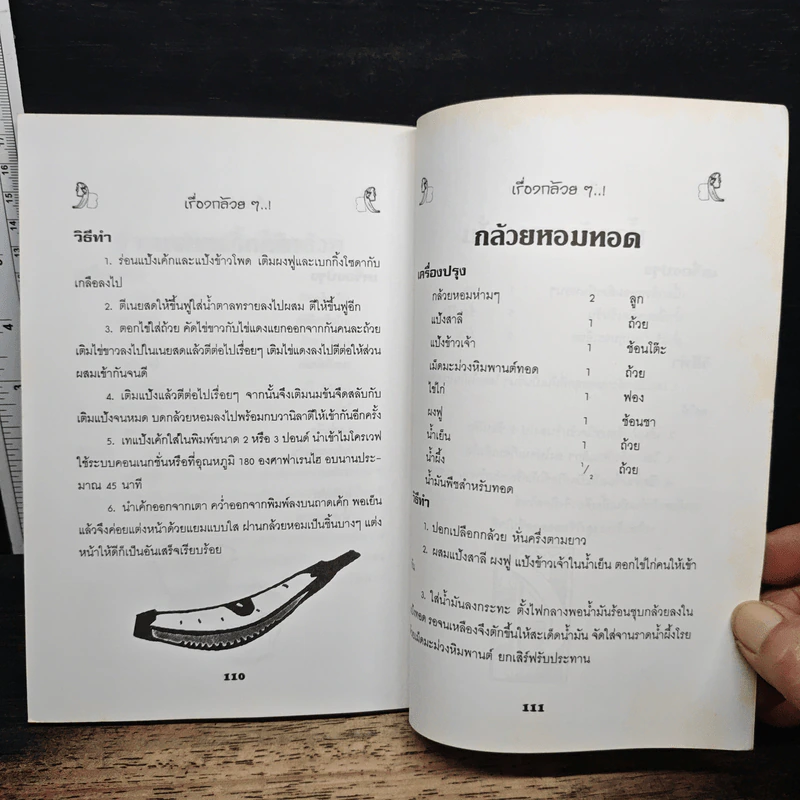 เรื่องกล้วย ๆ..!
วิธีทำ
1. ร่อนแป้งเค้กและแป้งข้าวโพด เติมผงฟูและเบกกิ้งโซดากับ
เกลือลงไป
2. ตีเนยสดให้ขึ้นฟูใส่น้ำตาลทรายลงไปผสม ตีให้ขึ้นฟูอีก
3. ตอกไข่ใส่ถ้วย คัดไข่ขาวกับไข่แดงแยกออกจากกันคนละถ้วย
เติมไข่ขาวลงไปในเนยสดแล้วตีต่อไปเรื่อยๆ เติมไข่แดงลงไปตีต่อให้ส่วน
ผสมเข้ากันจนดี
4. เติมแป้งแล้วตีต่อไปเรื่อยๆ จากนั้นจึงเติมนมข้นจืดสลับกับ
เติมแป้งจนหมด บดกล้วยหอมลงไปพร้อมกบวานิลาตีให้เข้ากันอีกครั้ง
5. เทแป้งเค้กใส่ในพิมพ์ขนาด 2 หรือ 3 ปอนด์ นำเข้าไมโครเวฟ
ใช้ระบบคอนเวกชั่นหรือที่อุณหภูมิ 180 องศาฟาเรนไฮ อบนานประ-
มาณ 45 นาที
6. นำเค้กออกจากเตา คว่ำออกจากพิมพ์ลงบนถาดเค้ก พอเย็น
แล้วจึงค่อยแต่งหน้าด้วยแยมแบบใส ฝานกล้วยหอมเป็นชิ้นบางๆ แต่ง
หน้าให้ดีก็เป็นอันเสร็จเรียบร้อย
110
เรื่องกล้วย ๆ..!
กล้วยหอมทอด
เครื่องปรุง
กล้วยหอมห่ามๆ 2 ลูก
แป้งสาลี 1 ถ้วย
แป้งข้าวเจ้า 1 ช้อนโต๊ะ
เม็ดมะม่วงหิมพานต์ทอด 1 ถ้วย
ไข่ไก่ 1 ฟอง
ผงฟู 1 ช้อนชา
น้ำเย็น 1 ถ้วย
น้ำผึ้ง 1/2 ถ้วย
น้ำมันพืชสำหรับทอด
วิธีทำ
1. ปอกเปลือกกล้วย หั่นครึ่งตามยาว
2. ผสมแป้งสาลี ผงฟู แป้งข้าวเจ้าในน้ำเย็น ตอกไข่ไก่คนให้เข้า
3. ใส่น้ำมันลงกระทะ ตั้งไฟกลางพอน้ำมันร้อนชุบกล้วยลงใน
ทอด รอจนเหลืองจึงตักขึ้นให้สะเด็ดน้ำมัน จัดใส่จานราดน้ำผึ้งโรย
เม็ดมะม่วงหิมพานต์ ยกเสิร์ฟรับประทาน
111